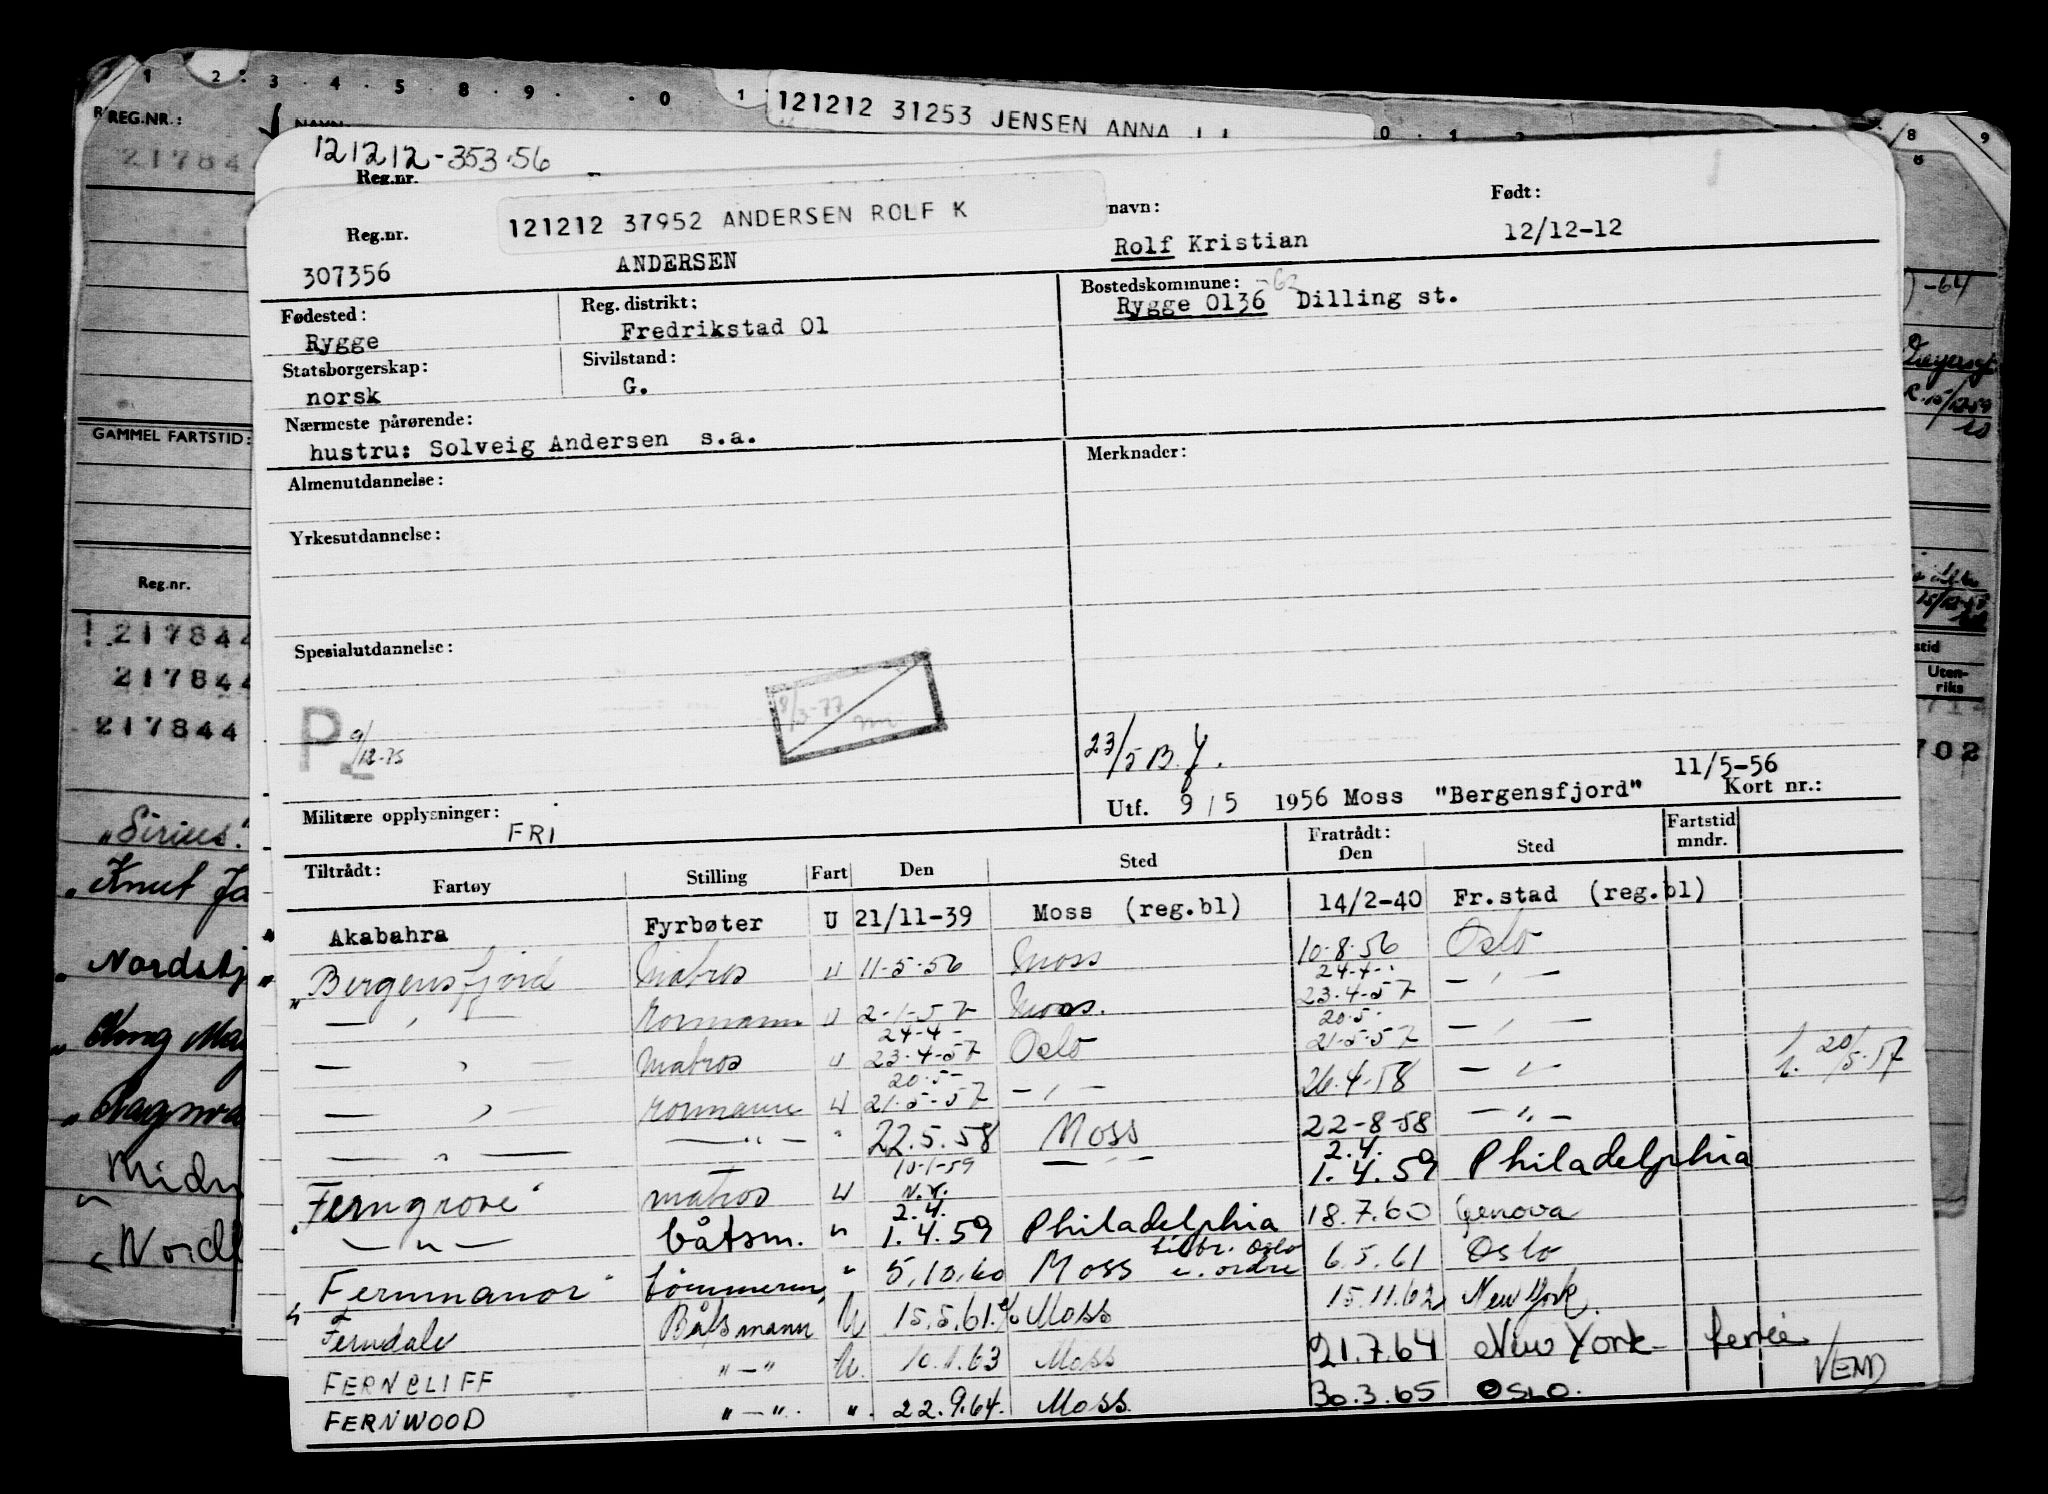 1 2 3 4 5 8 9 0 1
REG.NR.:
217844
121212 31253 JENSEN ANNA
121212-353.56
Reg.nr.
121212 37952 ANDERSEN ROLF K
navn:
Født:
Reg.nr.
307356
ANDERSEN
Rolf Kristian
12/12-12
Fødested:
Rygge
Reg. distrikt:
Fredrikstad 01
Bostedskommune: -62
Rygge 0136 Dilling st.
-64
Statsborgerskap:
norsk
Sivilstand:
G.
Nærmeste pårørende:
hustru: Solveig Andersen s.a.
GAMMEL FARTSTID:
Almenutdannelse:
Merknader:
Yrkesutdannelse:
Reg.nr.
217844
217844
217844
Spesialutdannelse:
P 9/12-75
8/3-77
23/5 B.
Utf. 9/5 1956 Moss "Bergensfjord" 11/5-56
Kort nr.:
Uten-
riks
702
Militære opplysninger:
FRI
Tiltrådt:
Fartøy Stilling Fart Den Sted
Fratrådt:
Den Sted
Fartstid
mndr.
Akabahra Fyrbøter U 21/11-39 Moss (reg.bl) 14/2-40 Fr.stad (reg.bl)
" Bergensfjord Matros U 11-5-56 Moss 10-8-56 Oslo
24-4-
— " — rormann U 2-1-57 Moss. 23-4-57 — " —
24-4- 20-5-
— " — Matros U 23-4-57 Oslo 21-5-57 — " —
20-5-
— " — rormann U 21-5-57 — " — 26.4-58 — " — 20/5-57
— " — — " — " 22.5.58 Moss 22-8-58 — " —
10-1-59 2.4.
"Ferngrove" matros U — " — 1.4.59 Philadelphia
2.4.
— " — båtsm. " 1.4.59 Philadelphia 18.7.60 Genova
"Fernmanor" tømmerm. " 5.10.60 Moss tilbr. Oslo e. ordre 6.5.61 Oslo
Ferndale Båtsmann U 15.5.61 Moss 15.11.62 New York.
FERNCLIFF " — " U. 10.1.63 Moss 21.7.64 New York ferie
FERNWOOD " — " ". 22.9.64. Moss 30.3.65 OSLO.
VEND
"Sirius"
"Knut Ja
"Nordstj
"Kong
"Ragnva
"
"Nord